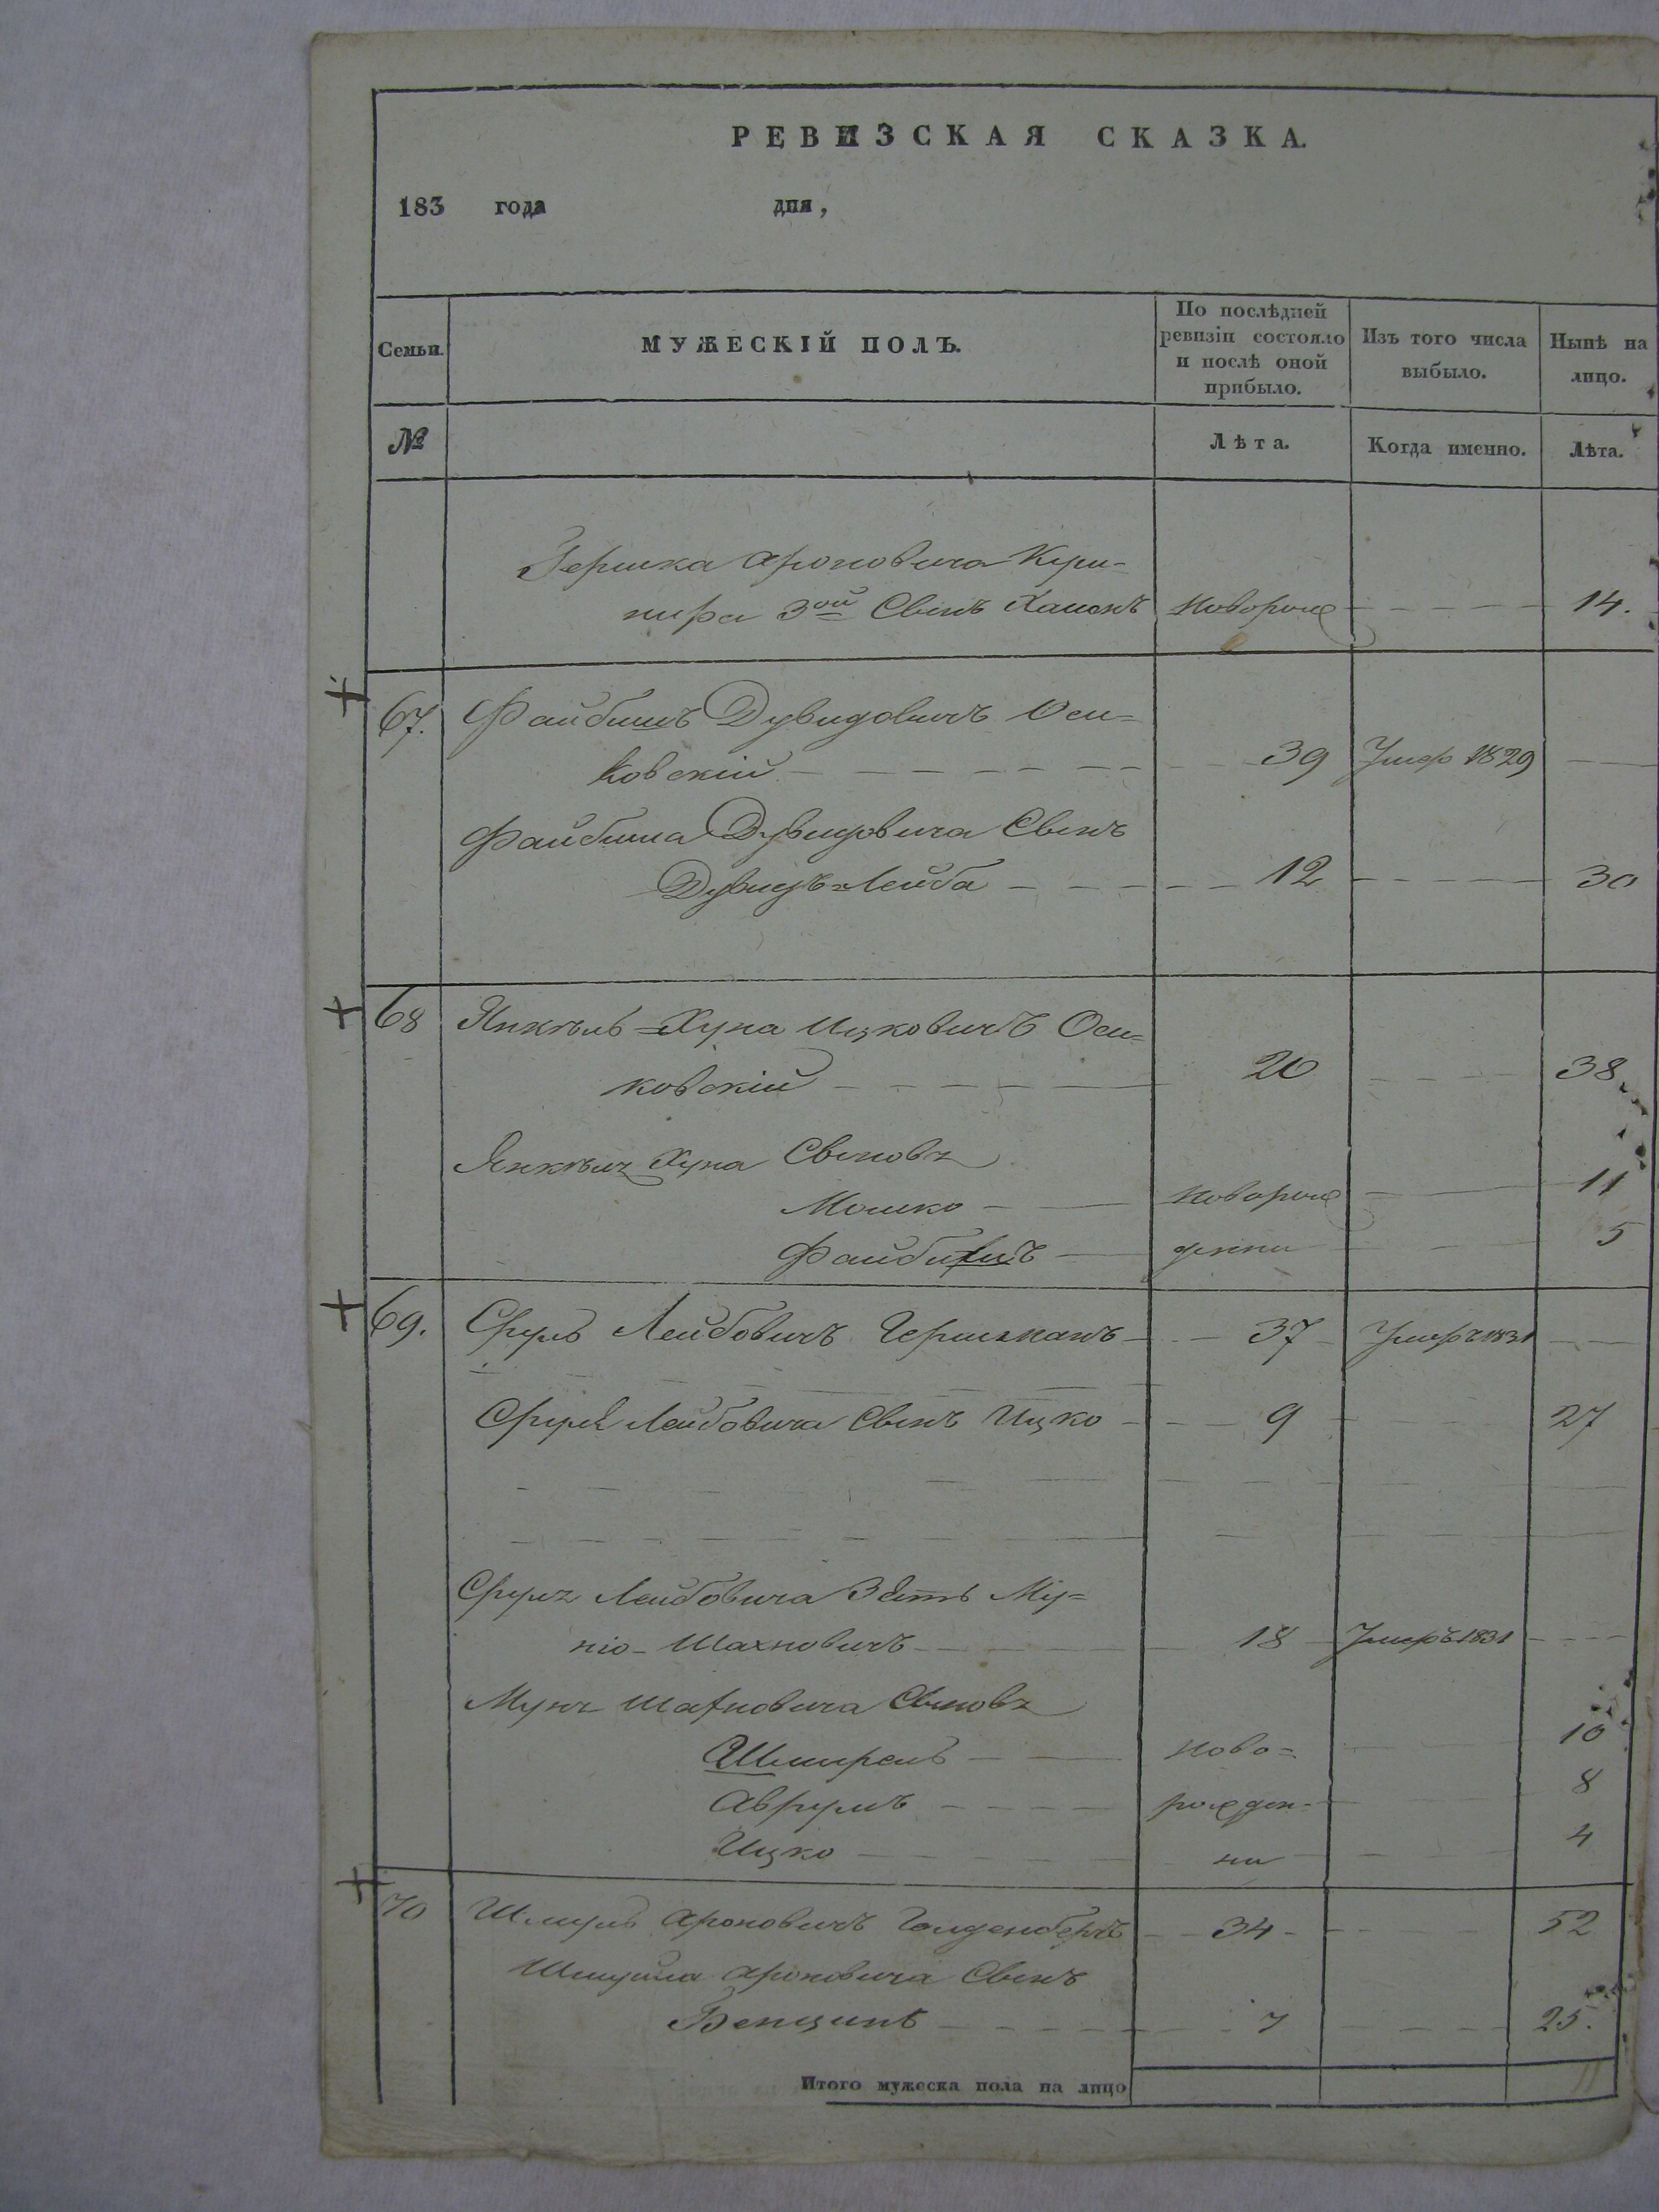 РЕВИЗСКАЯ СКАЗКА.
183 года дня,
Семьи.
МУЖЕСКІЙ ПОЛЪ.
По послѣдней
ревизіи состояло
и послѣ оной
прибыло.
Изъ того числа
выбыло.
Нынѣ на
лицо.
№
Лѣта.
Когда именно.
Лѣта.
Гершка Ароновича Куш-
нира 3ой Сынъ Хаимъ новорож 14.
67. Файбишъ Дувидовичъ Оси=
ковскій 39 Умер 1829
Файбиша Дувидовича Сынъ
Дувидъ=Лейба 12 30
68 Янкель=Хуна Ицковичъ Оси=
ковскій 20 38
Янкеля Хуна Сыновья
Мошко новорож 11
Файбишъ денни 5
69. Сруль Лейбовичъ Гершманъ 37 Умеръ 1831
Сруля Лейбовича Сынъ Ицко 9 27
Сруля Лейбовича Зять Му=
ніо Шахновичъ 18 Умеръ 1831
Муня Шахновича Сыновья
ново= 10
Аврумъ рожден- 8
Ицко ни 4
70 Шмуль Ароновичъ Голденбергъ 34 52
Шмуйла Ароновича Сынъ
Бенционъ 7 25.
Итого мужеска пола на лицо 11